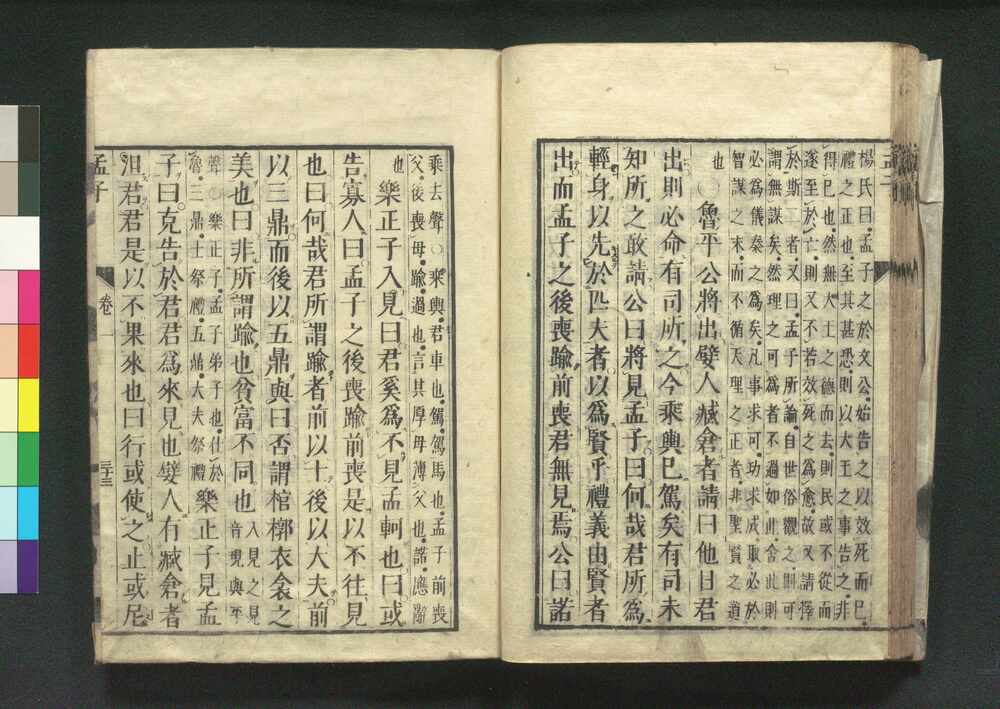 楊氏曰孟子之於文公始告之以效死而已
禮之正也至其甚恐則以大王之事告之非
得已也然無大王之德而去則民或不從而
遂至於亡則又不若效死之為愈故又請擇
於斯二者又曰孟子所論自世俗觀之則可
謂無謀矣然理之可為者不過如此舍此則
必為儀秦之為矣凡事求可功求成取必於
智謀之末而不循天理之正者非聖賢之道
也
〇魯平公將出嬖人臧倉者請曰他日君
出則必命有司所之今乘輿已駕矣有司未
知所之敢請公曰將見孟子曰何哉君所爲
輕身以先於匹夫者以爲賢乎禮義由賢者
出而孟子之後喪踰前喪君無見焉公曰諾
乘去聲〇乘輿君車也駕駕馬也孟子前喪
父後喪母踰過也言其厚母薄父也諾應辭
也
樂正子入見曰君奚爲不見孟軻也曰或
告寡人曰孟子之後喪踰前喪是以不往見
也曰何哉君所謂踰者前以士後以大夫前
以三鼎而後以五鼎與曰否謂棺椁衣衾之
美也曰非所謂踰也貧富不同也
入見之見
音現與平
聲〇樂正子孟子弟子也仕於
魯三鼎士祭禮五鼎大夫祭禮
樂正子見孟
子曰克告於君君爲來見也嬖人有臧倉者
沮君君是以不果來也曰行或使之止或尼
孟子
卷一